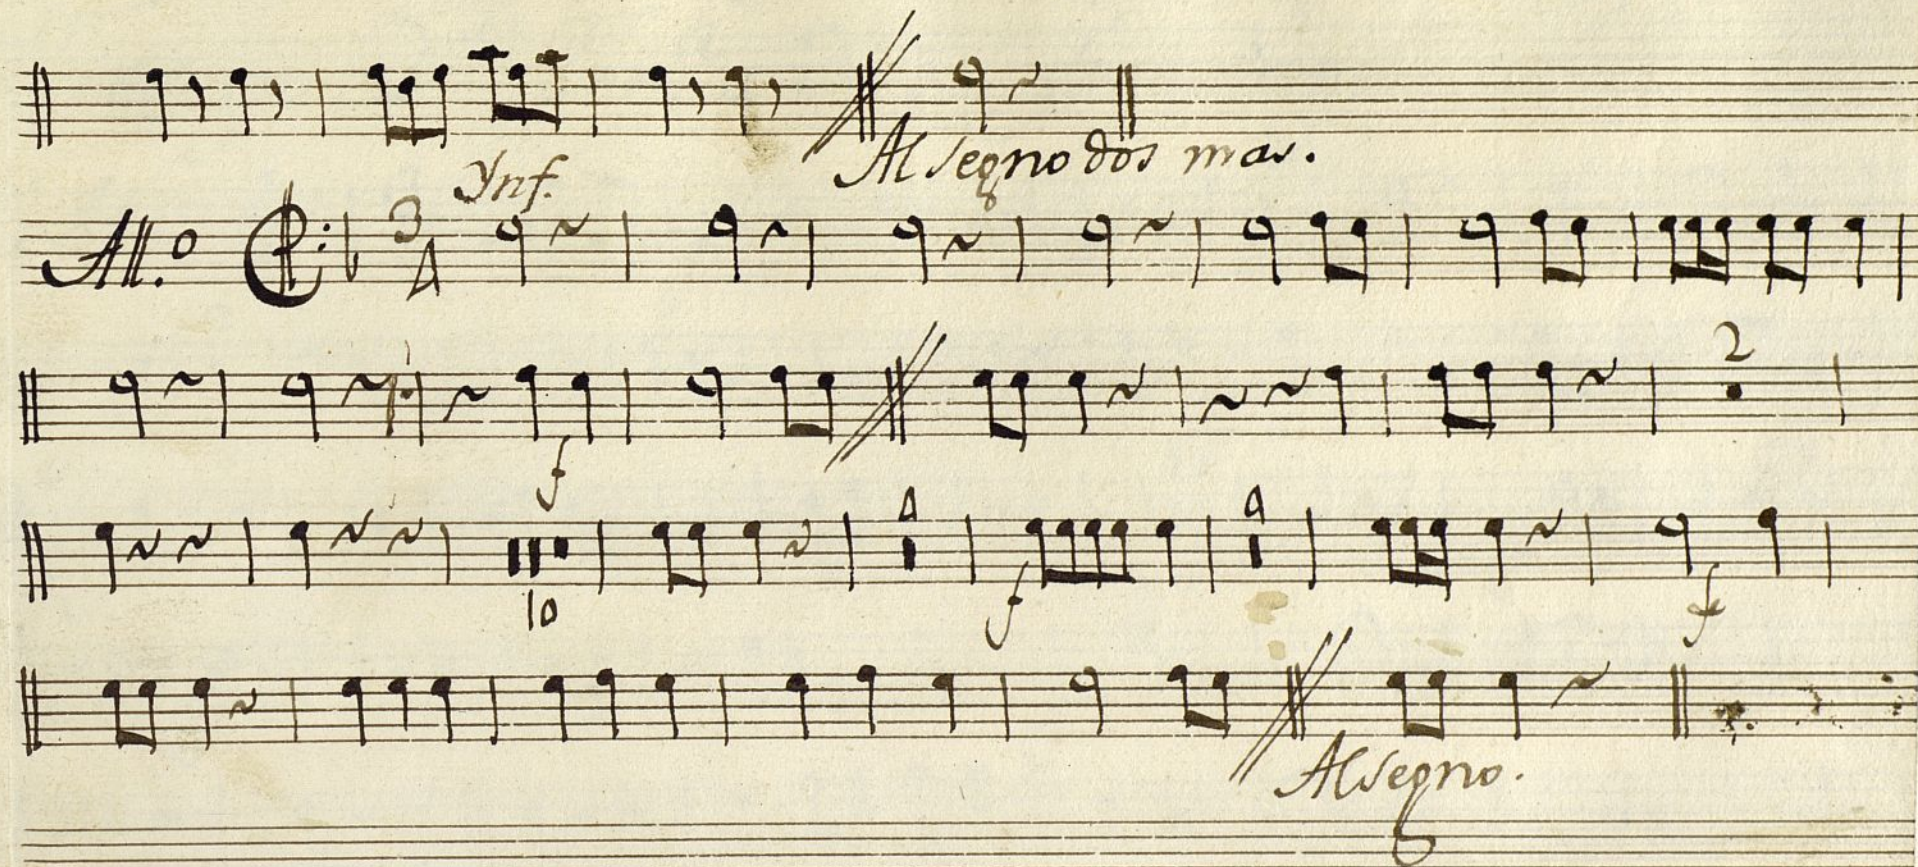 Al Segno dos mas.
Ynf.
All.o 3/4
2
f
4 4
10 f f
Al Segno.